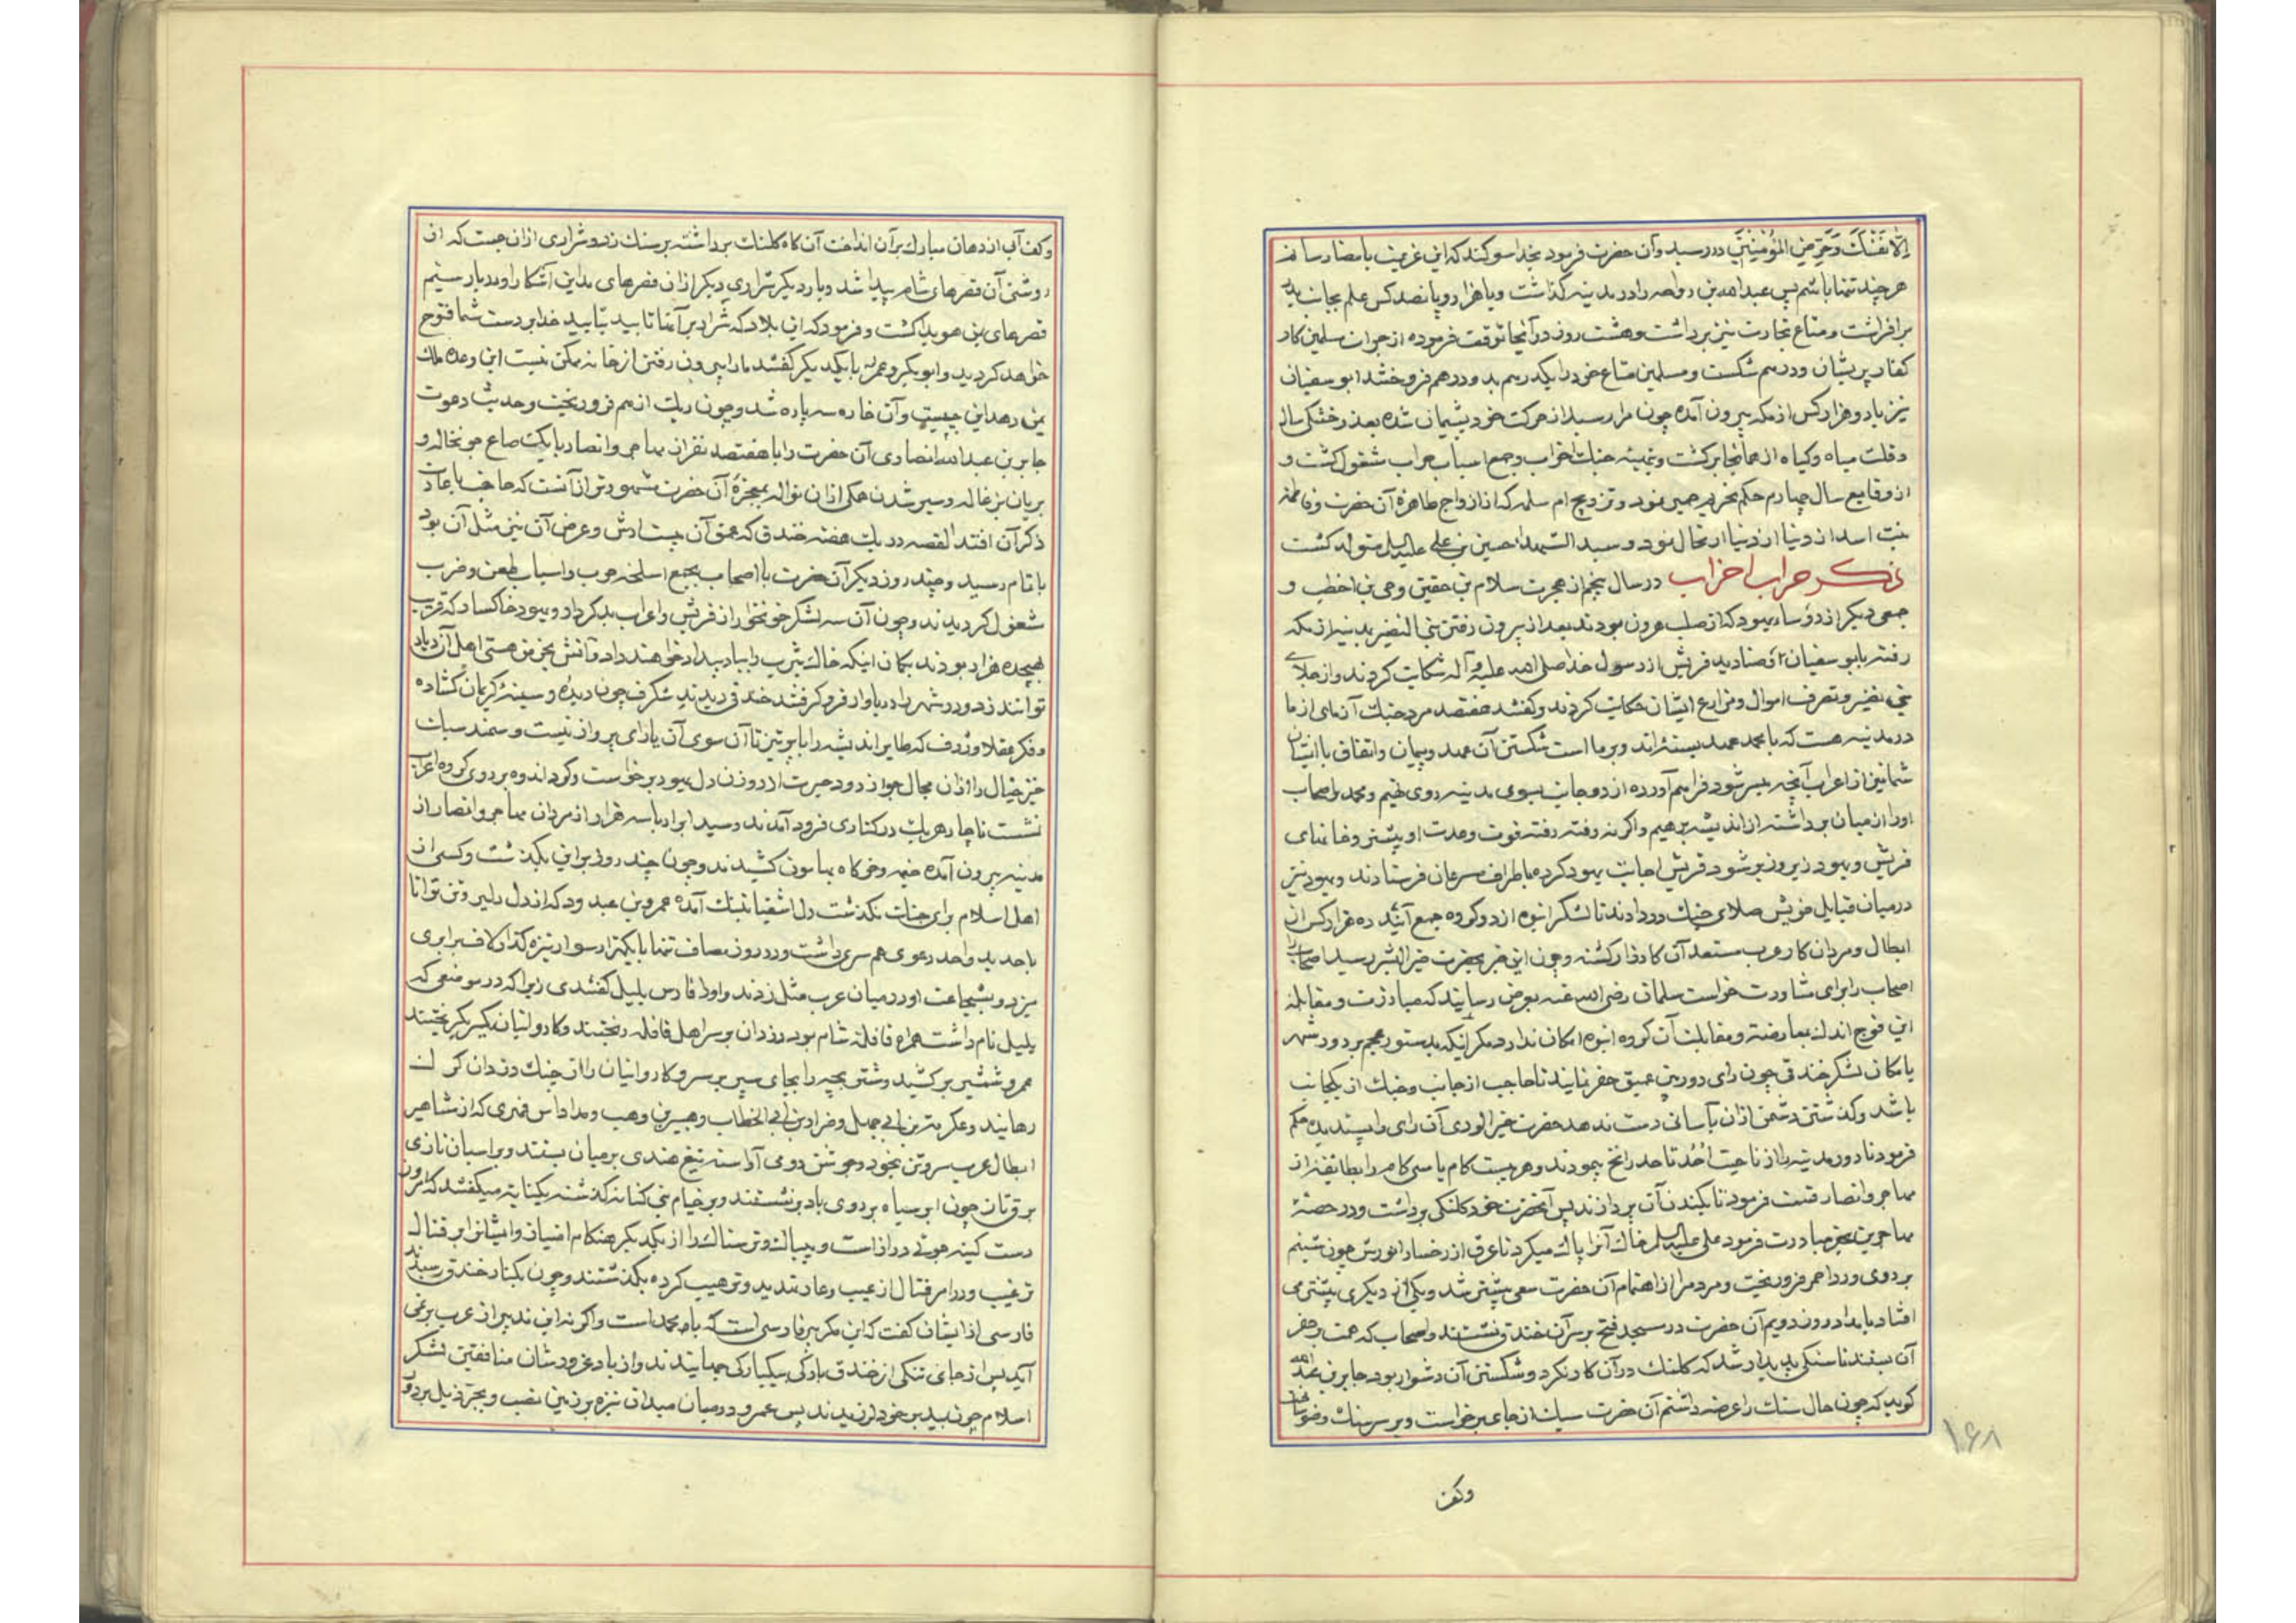 اِلّا نَفْسَكَ وَحَرِّضِ المُؤْمِنِینَ در رسید وآن حضرت فرمود بخدا سوکند که این عزیمت بامضا رسانم
هرچند تنها باشم پس عبدالله بن رواحه را در مدینه کذاشت وبا هزار و پانصد کس علم بجانب بدر
برافراشت ومتاع تجارت نیز برداشت وهشت روز در آنجا توقف فرموده از جوان مسلمین کار
کفار پریشان ودرهم شکست ومسلمین متاع خود را یکدرهم بدو درهم فروختند ابوسفیان
نیز با دو هزار کس از مکه بیرون آمده چون رسید از حرکت خود پشیمان شده بعذر خشکی سال
وقلت میاه وکیاه از همانجا برکشت وبتهیئه جنک احزاب وجمع اسباب حراب مشغول کشت و
از وقایع سال چهارم حکم تحریم خمر بود وتزویج ام سلمه که از ازواج طاهره آن حضرت وفاطمه
بنت اسد از دنیا ارتحال نمود وسید الشهدا حسین بن علی علیه السلم متولد کشت
ذکر حراب احزاب در سال پنجم از هجرت سلام بن حقیق وحی بن اخطب و
جمعی دیکر از رؤساء یهود که از صلب هرون بودند بعد از بیرون رفتن بنی النضیر از مکه
رفته با ابوسفیان و صنادید قریش از رسول خدا صلی الله علیه وآله شکایت کردند واز جلای
بنی نضیر وتصرف اموال ومزارع ایشان حکایت کردند وکفتند هفتصد مرد جنک آزمای از ما
در مدینه هست که با محمد عهد بسته‌اند وبر ما است شکستن آن عهد وپیمان واتفاق با ایشان
شما نیز از اعراب آنچه میسر شود فراهم آورده از دو جانب بسوی مدینه روی نهیم ومحمد واصحاب
او را از میان برداشته از اندیشه برهیم واکرنه رفته رفته قوت وعدت او بیشتر وخانمای
قریش ویهود زیر وزبر شود قریش اجابت یهود کرده باطراف مسرعان فرستادند ویهود نیز
درمیان قبایل خویش صلای جنک در دادند تا لشکر انبوه از دو کروه جمع آیند ده هزار کس از
ابطال ومردان کار عرب مستعد آن کارزار کشته وچون این خبر بحضرت خیر البشر رسید
اصحاب را برای مشاورت خواست سلمان رضی الله عنه بعرض رسانید که مبارزت ومقابله
این فوج اندک بمعارضه ومقابلت آن کروه انبوه امکان ندارد مکر آنکه بدستور عجم بر دور شهر
یا مکان لشکر خندقی چون رای دوربین عمیق حفر نمایند تا حاجب از جانب وجنک از یکجانب
باشد وکذشتن دشمن ازان بآسانی دست ندهد حضرت خیر الوری آن رای را پسندیده حکم
فرمود تا دور مدینه را از ناحیت اُحُد تا حد راتج پیمودند وهر بیست کام یا سی کام را بطایفه از
مهاجر وانصار قسمت فرمود تا بکندن آن پردازند پس آنحضرت خود کلنکی برداشت ودر حصهٔ
مهاجرین بحفر مبادرت فرمود علی علیه السلم خاک آنرا پاک میکرد تا عرق از رخسار انورش چون شبنم
بر روی ورد احمر فرو ریخت ومردم را از اهتمام آن حضرت سعی بیشتر شد ویکی از دیکری پیشتر می
افتاد بامداد روز دویم آن حضرت در مسجد فتح بر سر آن خندق نشستند واصحاب کمر همت بر حفر
آن بستند تا سنکی پدیدار شد که کلنک در آن کار نکرد وشکستن آن دشوار بود جابر بن عبدالله
کوید که چون حال سنک را عرضه داشتم آن حضرت سبک از جای برخواست وبر سر سنک وضو ساخت
وکف
۱۶۸
وکف آب از دهان مبارک برآن انداخت آن کاه کلنک برداشته بر سنک زد وشراری ازان جست که از
روشنی آن قصرهای شام پیدا شد وبار دیکر شراری دیکر ازان قصرهای مداین آشکارا ودر بار سیم
قصرهای یمن هویدا کشت وفرمود که این بلاد که شرار برآنها تابید بتایید خدا بر دست شما فتوح
خواهد کردید وابوبکر وعمر با یکدیکر کفتند ما را بیرون رفتن از خانه ممکن نیست این وعده ملک
یمن ومداین چیست وآن خاره سه پاره شد وچون ریک از هم فرو ریخت وحدیث دعوت
جابر بن عبدالله انصاری آن حضرت را با هفتصد نفر از مهاجر وانصار بایک صاع جو نخاله و
بریان بزغاله وسیر شدن همکی ازان نواله بمعجزهٔ آن حضرت مشهورتر از آنست که حاجت باعادت
ذکر آن افتد القصه در یک هفته خندق که عمق آن بیست ارش وعرض آن نیز مثل آن بود
باتمام رسید وچند روز دیکر آن حضرت با اصحاب بجمع اسلحه حرب واسباب طعن وضرب
مشغول کردیدند وچون آن سه لشکر خونخوار از قریش واعراب بدکردار ویهود خاکسار که قریب
هیجده هزار بودند بکمان اینکه خاک یثرب را بباد بیداد خواهند داد وآتش بخرمن هستی اهل آن دیار
توانند زد ودر شهر را دریاوار فرو کرفتند خندقی دیدند شکرف چون دیده وسینهٔ کریمان کشاده
وفکر عقلا وژرف که طایر اندیشه را با پر تیز تا آن سوی آن یارای پرواز نیست وسمند سبک
خیز خیال را ازان مجال جواز دود حیرت از روزن دل یهود برخواست وکرد اندوه بر روی کروه اعراب
نشست ناچار هریک در کناری فرود آمدند وسید ابرار با سه هزار از مردان مهاجر وانصار از
مدینه بیرون آمده خیمه وخرکاه بهامون کشیدند وچون چند روز براین بکذشت وکسی از
اهل اسلام برای جنک نکذشت دل اشقیا بتنک آمده عمرو بن عبدود که از دل دلیر وتن توانا
باحدید واحد دعوی همسری داشت ودر روز مصاف تنها با یکهزار سوار نیزه کذار لاف برابری
میزد وبشجاعت او در میان عرب مثل زدند واو را فارس یلیل کفتندی زیرا که در موضعی که
یلیل نام داشت همراه قافلهٔ شام بود دزدان بر سر اهل قافله ریختند وکاروانیان یکسر بکریختند
عمرو شمشیر برکشید وشتر بچه را بجای سپر بر سر وکاروانیان را از چنک دزدان کرک
رهانید وعکرمة بن ابی جهل وضرار بن الخطاب وهبیرة بن وهب ومرداس فهری که از مشاهیر
ابطال عرب سر وتن بخود وجوشن رومی آراسته تیغ هندی بر میان بستند وبر اسبان تازی
برق تان چون ابر سیاه بر روی باد برنشستند وبر خیام بنی کنانه کذشته بکنایه میکفتند که امروز
دست کینه جوئی دراز است وبیباک وترسناک را از یکدیکر هنکام امتیاز وایشانرا بر قتال
ترغیب ودر امر قتال از عیب وعار تهدید وترهیب کرده بکذشتند وچون بکنار خندق رسیدند
فارسی از ایشان کفت که این مکر پیر فارسی است که با محمد است واکرنه این تدبیر از عرب برنمی
آید پس از جای تنکی از خندق بارکی بیکبارکی جهانیدند واز باد غرورشان منافقین لشکر
اسلام چون بید بر خود لرزیدند پس عمرو در میان میدان نیزه بر زمین نصب وبجر ذیل بر دور